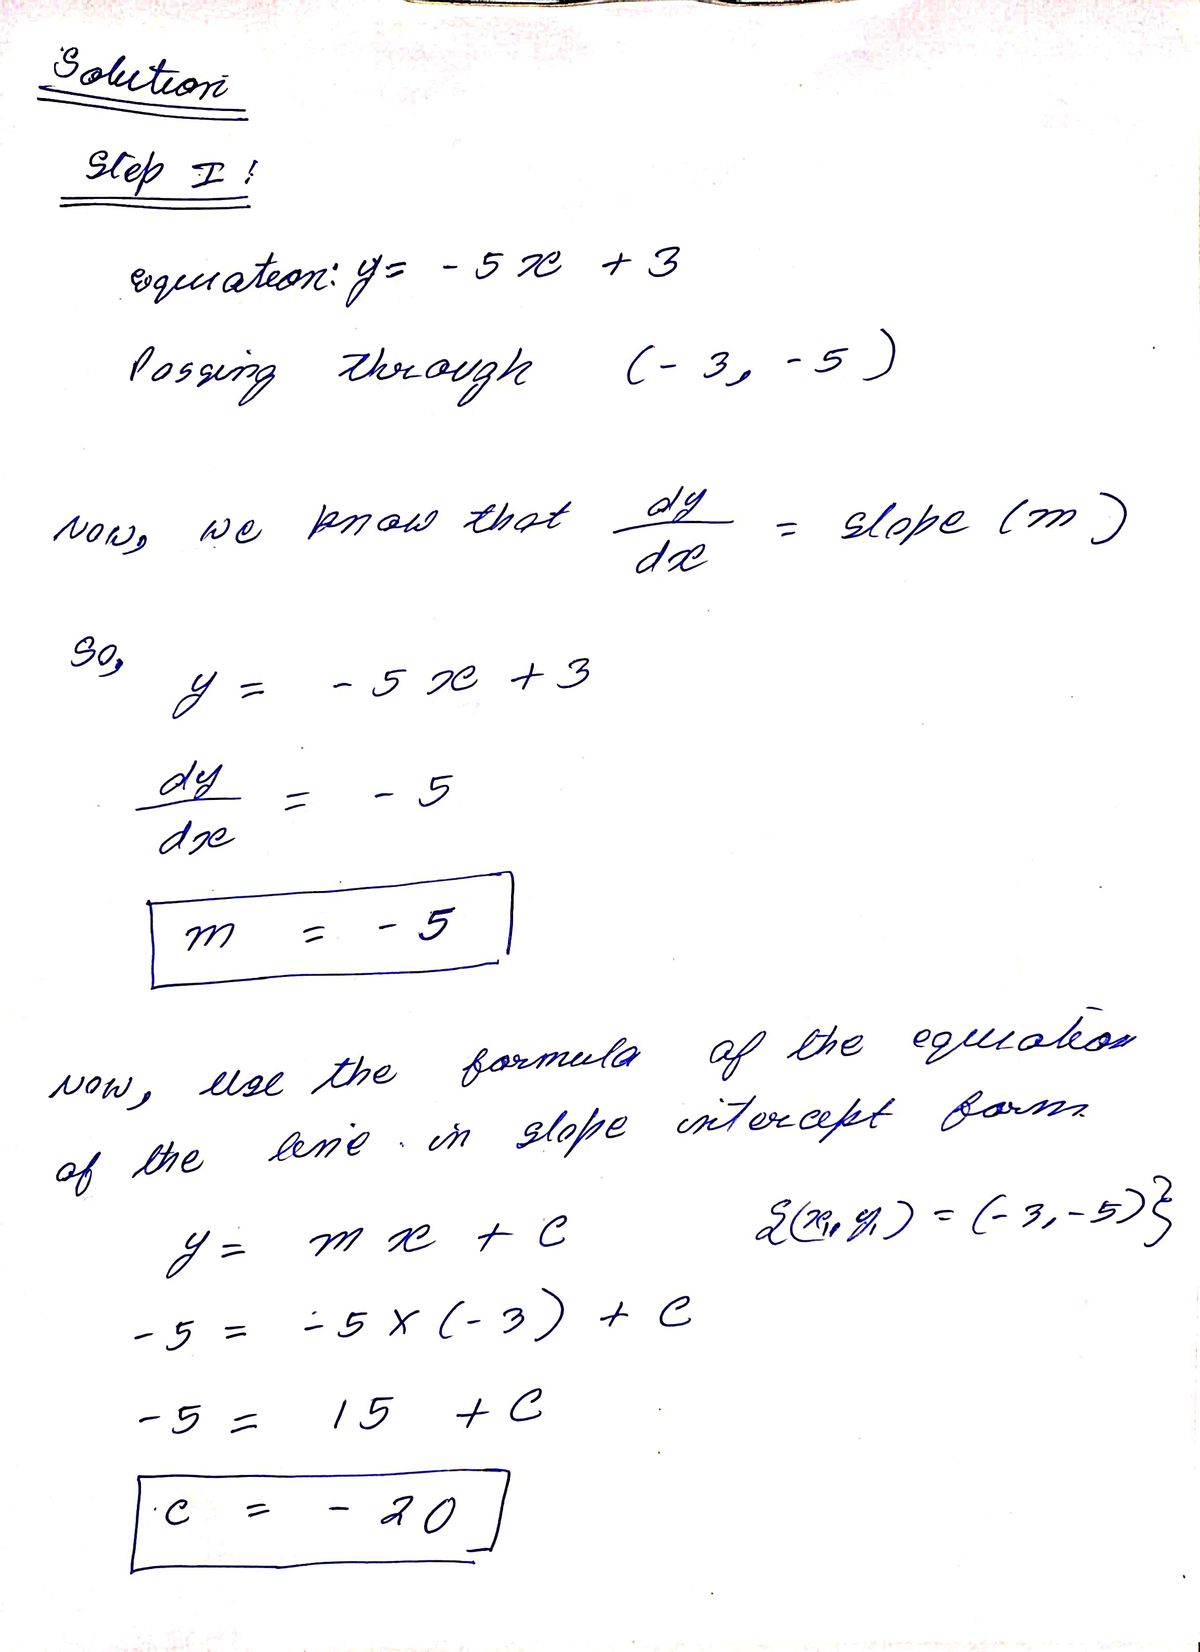 Solution
Step I:
equation: y = -5x + 3
Passing through (-3, -5)
Now, we know that dy/dx = slope (m)
So,
y = -5x + 3
dy/dx = -5
m = -5
Now, use the formula of the equation
of the line in slope intercept form.
y = mx + c {(x₁, y₁) = (-3, -5)}
-5 = -5 × (-3) + c
-5 = 15 + c
c = -20